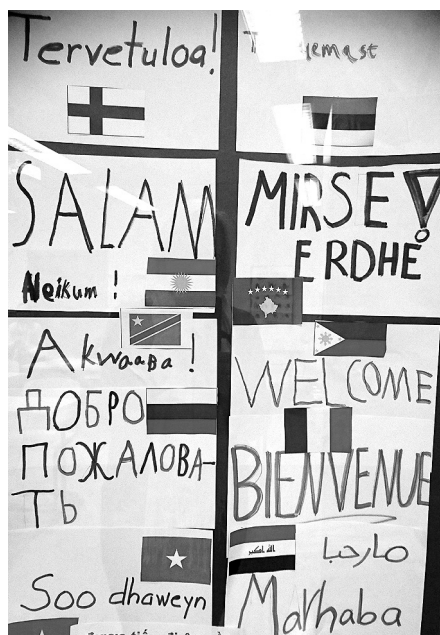 Tervetuloa!
SALAM
Neikum !
Akwaaba !
ДОБРО
ПОЖАЛОВА-
ТЬ
Soo dhaweyn
MIRSE!
ERDHE
WELCOME
BIENVENUE
الله اكبر
مارحبا
Marhaba